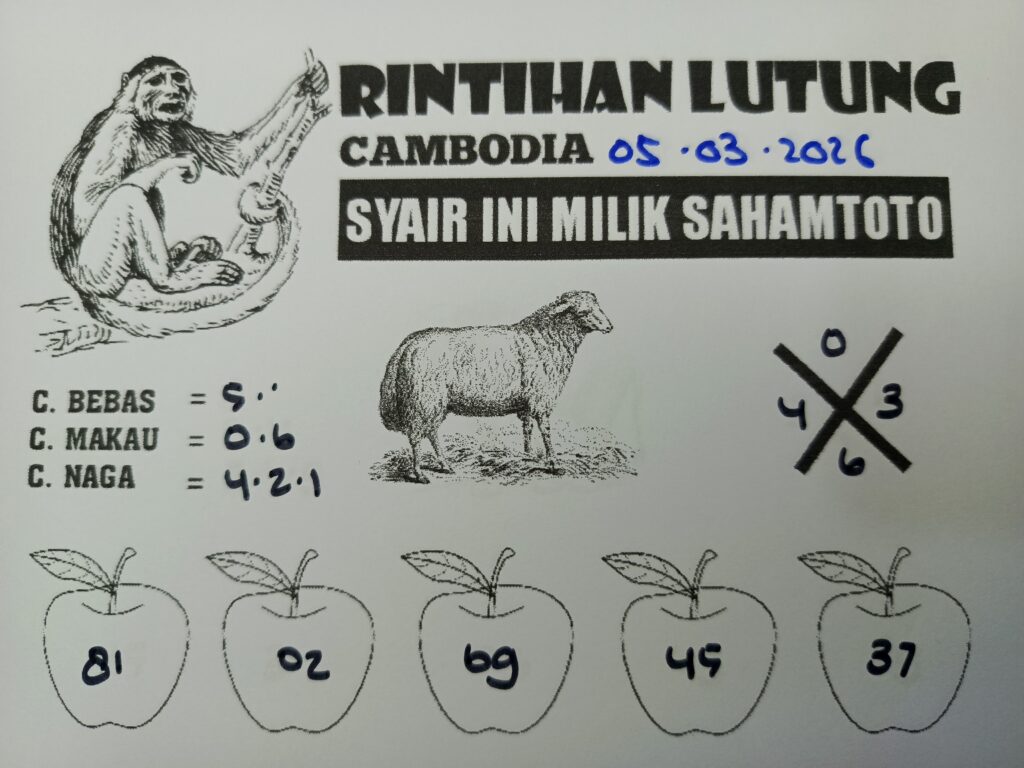 RINTIHAN LUTUNG
CAMBODIA 05.03.2026
SYAIR INI MILIK SAHAMTOTO
C. BEBAS = 5.
C. MAKAU = 0.6
C. NAGA = 4.2.1
0
4 3
6
81 02 69 45 37